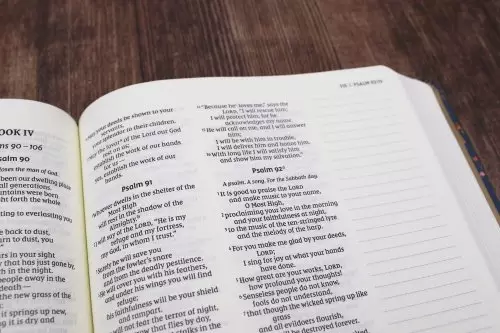 OOK IV
ns 90–106
salm 90
oses the man of God.
been our dwelling place
all generations.
untains were born
ht forth the whole
ting to everlasting you
e back to dust,
urn to dust, you
ars in your sight
y that has just gone by,
h in the night.
people away in the
death—
the new grass of the
it springs up new,
May your deeds be shown to your
servants,
your splendor to their children.
May the favor of the Lord our God
establish the work of our hands
for us—
yes, establish the work of our
hands.
Psalm 91
Whoever dwells in the shelter of the
Most High
will rest in the shadow of the
Almighty.
I will say of the LORD, "He is my
refuge and my fortress,
my God, in whom I trust."
Surely he will save you
from the fowler's snare
and from the deadly pestilence.
He will cover you with his feathers,
and under his wings you will find
refuge;
his faithfulness will be your shield
and rampart.
will not fear the terror of night,
arrow that flies by day,
stalks in the
PSALM
"Because he loves me," says the
LORD, "I will rescue him;
I will protect him, for he
acknowledges my name.
He will call on me, and I will answer
him;
I will be with him in trouble,
I will deliver him and honor him.
With long life I will satisfy him
and show him my salvation."
Psalm 92
A psalm. A song. For the Sabbath day.
It is good to praise the LORD
and make music to your name,
O Most High,
proclaiming your love in the morning
and your faithfulness at night,
to the music of the ten-stringed lyre
and the melody of the harp.
For you make me glad by your deeds,
LORD;
I sing for joy at what your hands
have done.
How great are your works, LORD,
how profound your thoughts!
Senseless people do not know,
fools do not understand,
that though the wicked spring up like
grass
and all evildoers flourish,
will be destroyed forever.